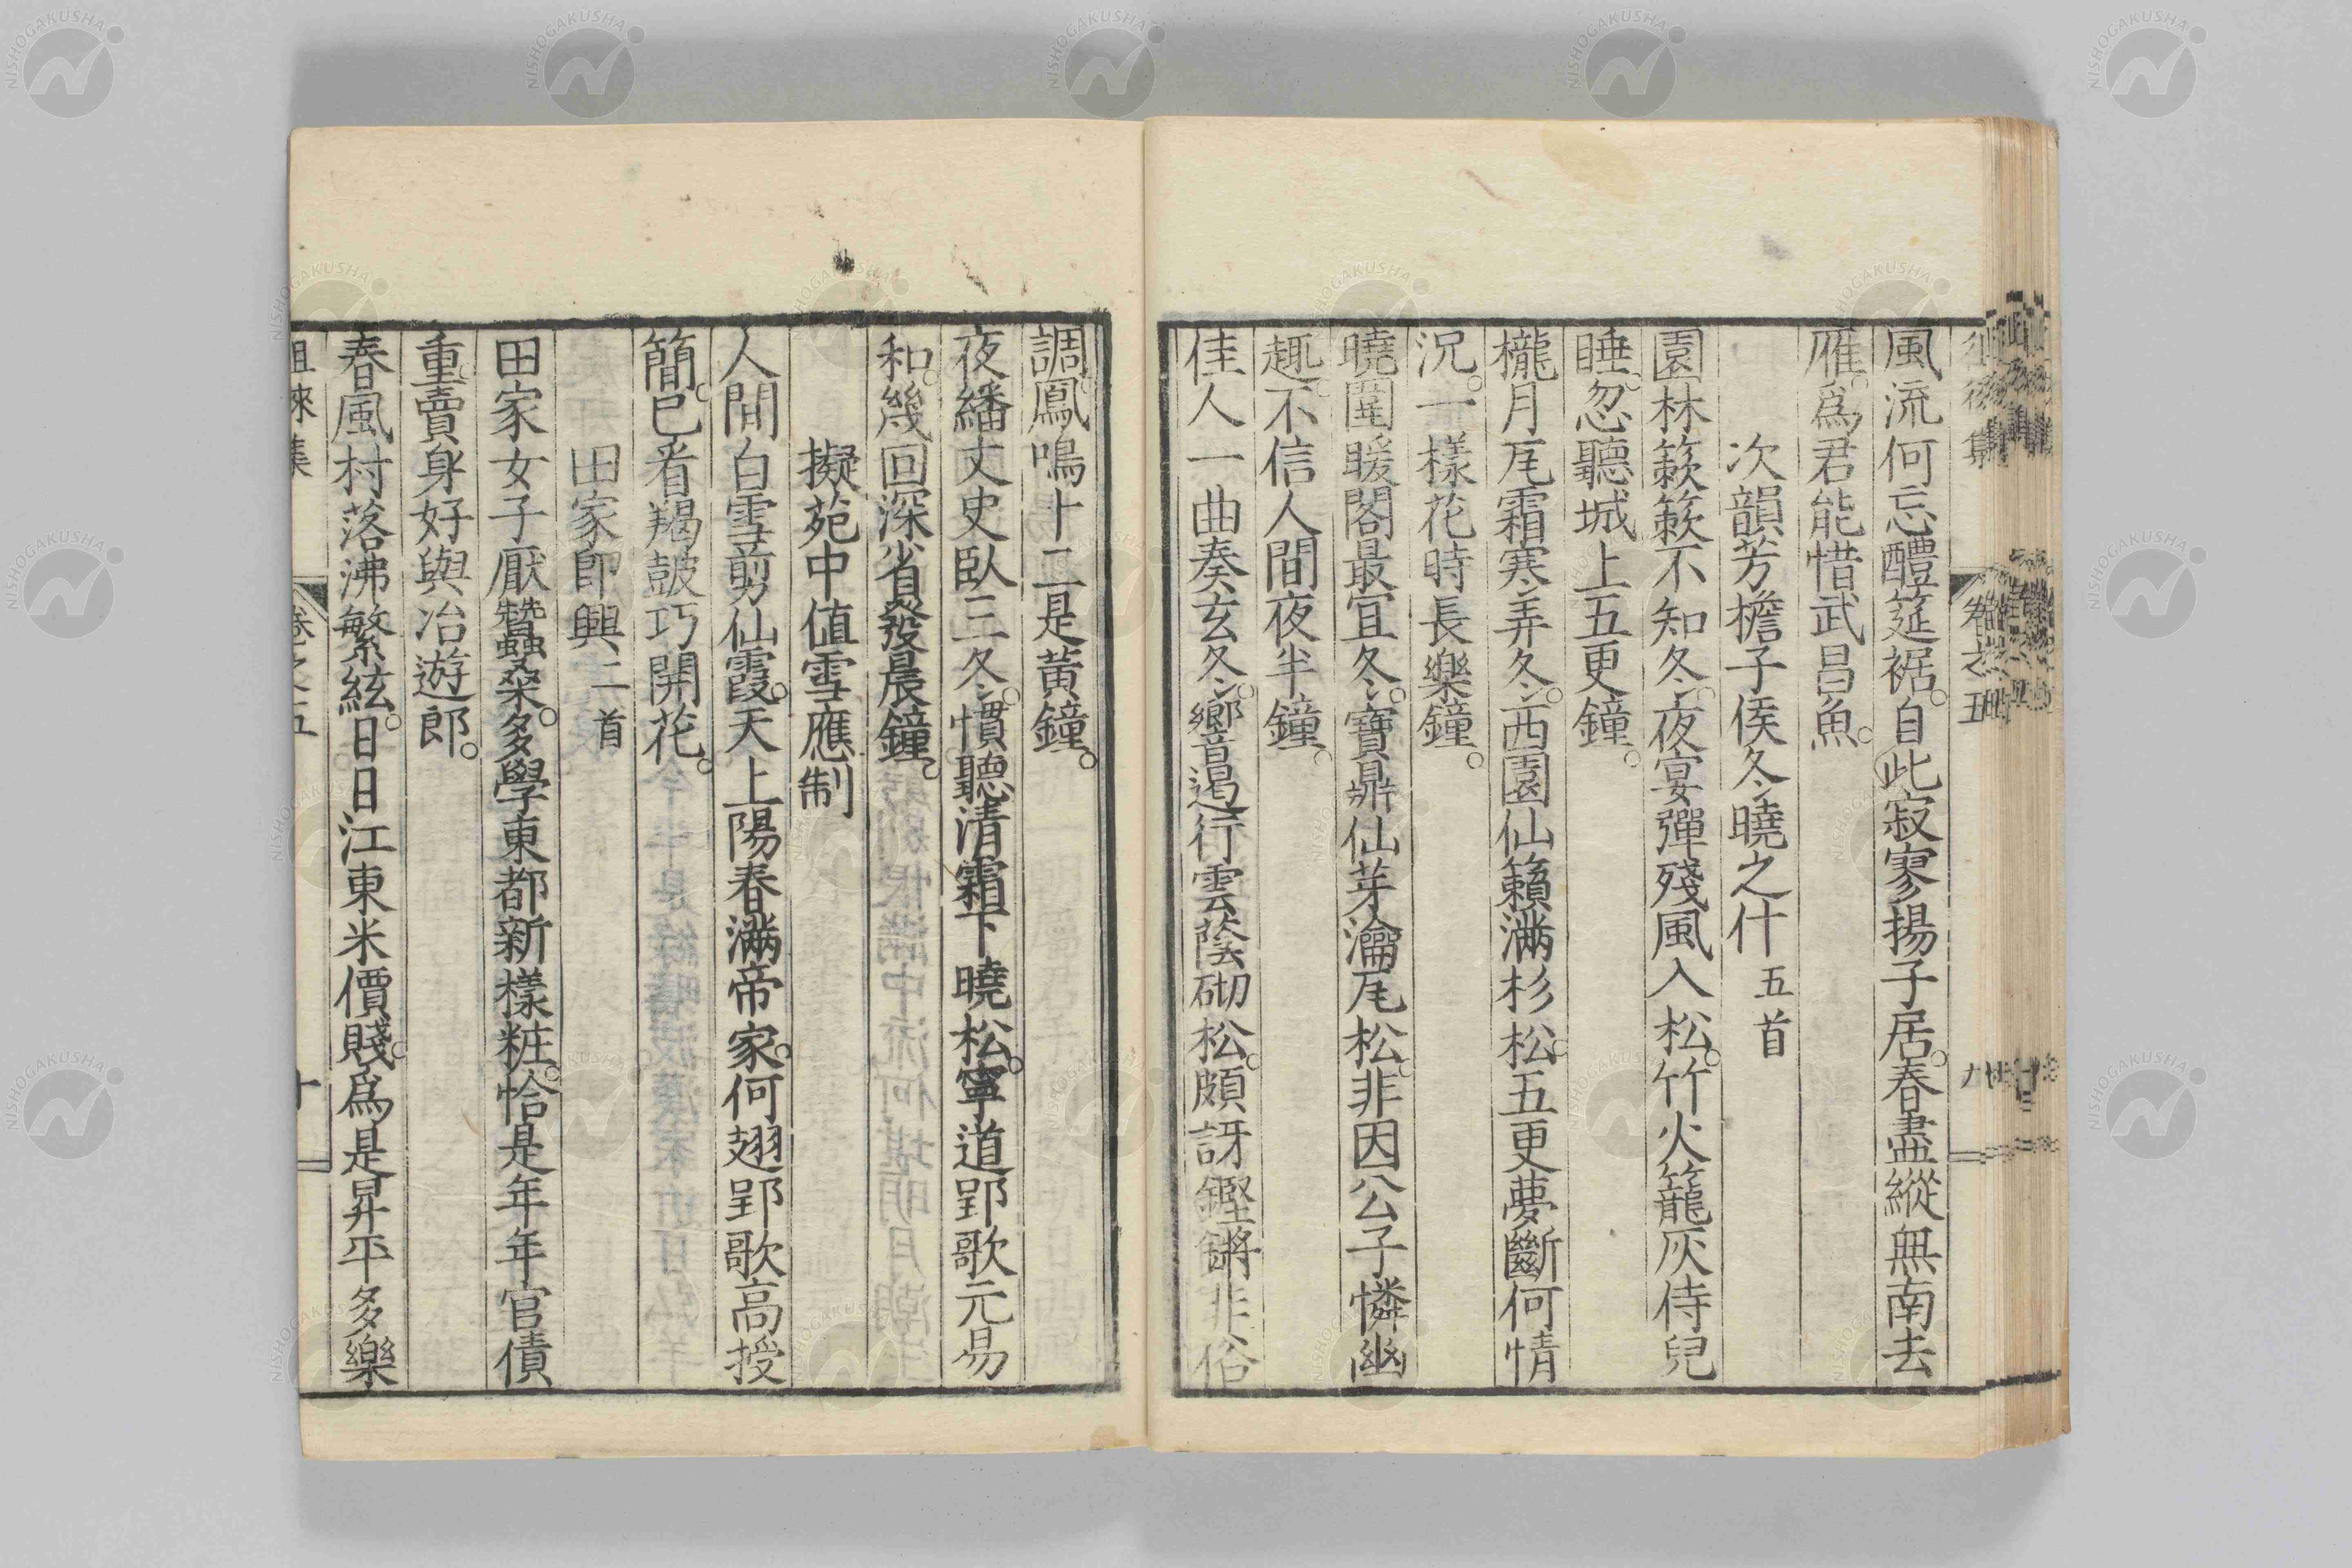 風流何忘醴筵裾。自此寂寥揚子居。春盡縱無南去
雁。爲君能惜武昌魚。
次韻芳擔子侯冬曉之什 五首
園林簌簌不知冬。夜宴彈殘風入松。竹火籠灰侍兒
睡。忽聽城上五更鐘。
櫳月尾霜寒弄冬。西園仙籟滿杉松。五更夢斷何情
況。一樣花時長樂鐘。
曉圍暖閣最宜冬。寶鼎仙芽瀹尾松。非因公子憐幽
趣。不信人間夜半鐘。
佳人一曲奏玄冬。響遏行雲蔭砌松。頗訝鏗鏘非俗
調。鳳鳴十二是黃鐘。
夜繙丈史臥三冬。慣聽清霜下曉松。寧道郢歌元易
和。幾回深省發晨鐘。
擬苑中値雪應制
人間白雪剪仙霞。天上陽春滿帝家。何翅郢歌高授
簡。已看羯鼓巧開花。
田家卽興 二首
田家女子厭蠶桑。多學東都新樣粧。恰是年年官債
重。賣身好與冶遊郎。
春風村落沸繁絃。日日江東米價賤。爲是昇平多樂
徂徠集 卷之五 十
徂徠集 卷之五 九
NISHOGAKUSHA